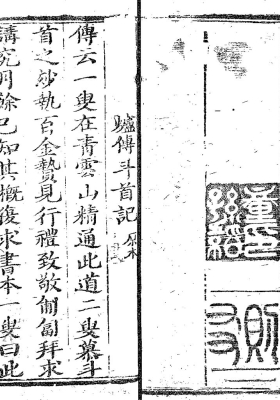 臚傳斗首記 原本
傳云一叟在青雲山精通此道二叟慕斗
首之妙執百金贄見行禮致敬匍匐拜求
講究月餘已知其概復求書本一叟曰此